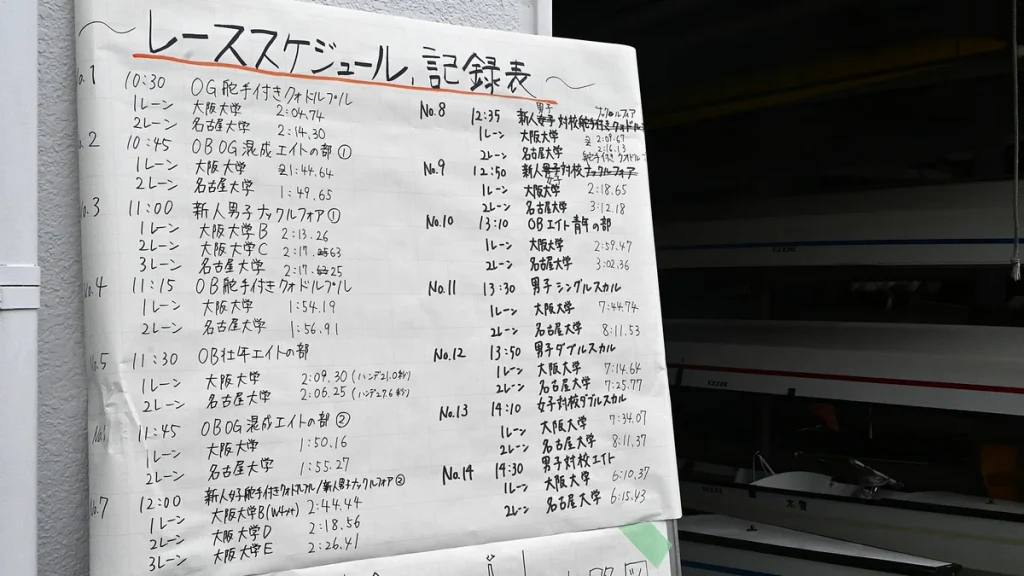 レーススケジュール、記録表
No.1 10:30 OG舵手付きクォドルプル
1レーン 大阪大学 2:04.74
2レーン 名古屋大学 2:14.30
No.2 10:45 OBOG混成エイトの部①
1レーン 大阪大学 1:44.64
2レーン 名古屋大学 1:49.65
No.3 11:00 新人男子ナックルフォア①
1レーン 大阪大学B 2:13.26
2レーン 大阪大学C 2:17.63
3レーン 名古屋大学 2:17.25
No.4 11:15 OB舵手付きクォドルプル
1レーン 大阪大学 1:54.19
2レーン 名古屋大学 1:56.91
No.5 11:30 OB壮年エイトの部
1レーン 大阪大学 2:09.30 (ハンデ21.0秒)
2レーン 名古屋大学 2:06.25 (ハンデ27.6秒)
11:45 OBOG混成エイトの部②
1レーン 大阪大学 1:50.16
2レーン 名古屋大学 1:55.27
No.7 12:00 新人女子舵手付きクォドルプル/新人男子ナックルフォア②
1レーン 大阪大学B(W4x+) 2:44.44
2レーン 大阪大学D 2:18.56
3レーン 大阪大学E 2:26.41
男子 ナックルフォア
No.8 12:35 新人女子対校舵手付きクォドルプル
1レーン 大阪大学 2:09.67
2レーン 名古屋大学 2:16.13
舵手付きクォドルプル
No.9 12:50 新人男子対校ナックルフォア
女子
1レーン 大阪大学 2:18.65
2レーン 名古屋大学 3:12.18
No.10 13:10 OBエイト青年の部
1レーン 大阪大学 2:59.47
2レーン 名古屋大学 3:02.36
No.11 13:30 男子シングルスカル
1レーン 大阪大学 7:44.74
2レーン 名古屋大学 8:11.53
No.12 13:50 男子ダブルスカル
1レーン 大阪大学 7:14.64
2レーン 名古屋大学 7:25.77
No.13 14:10 女子対校ダブルスカル
1レーン 大阪大学 7:34.07
2レーン 名古屋大学 8:11.37
No.14 14:30 男子対校エイト
1レーン 大阪大学 6:10.37
2レーン 名古屋大学 6:15.43